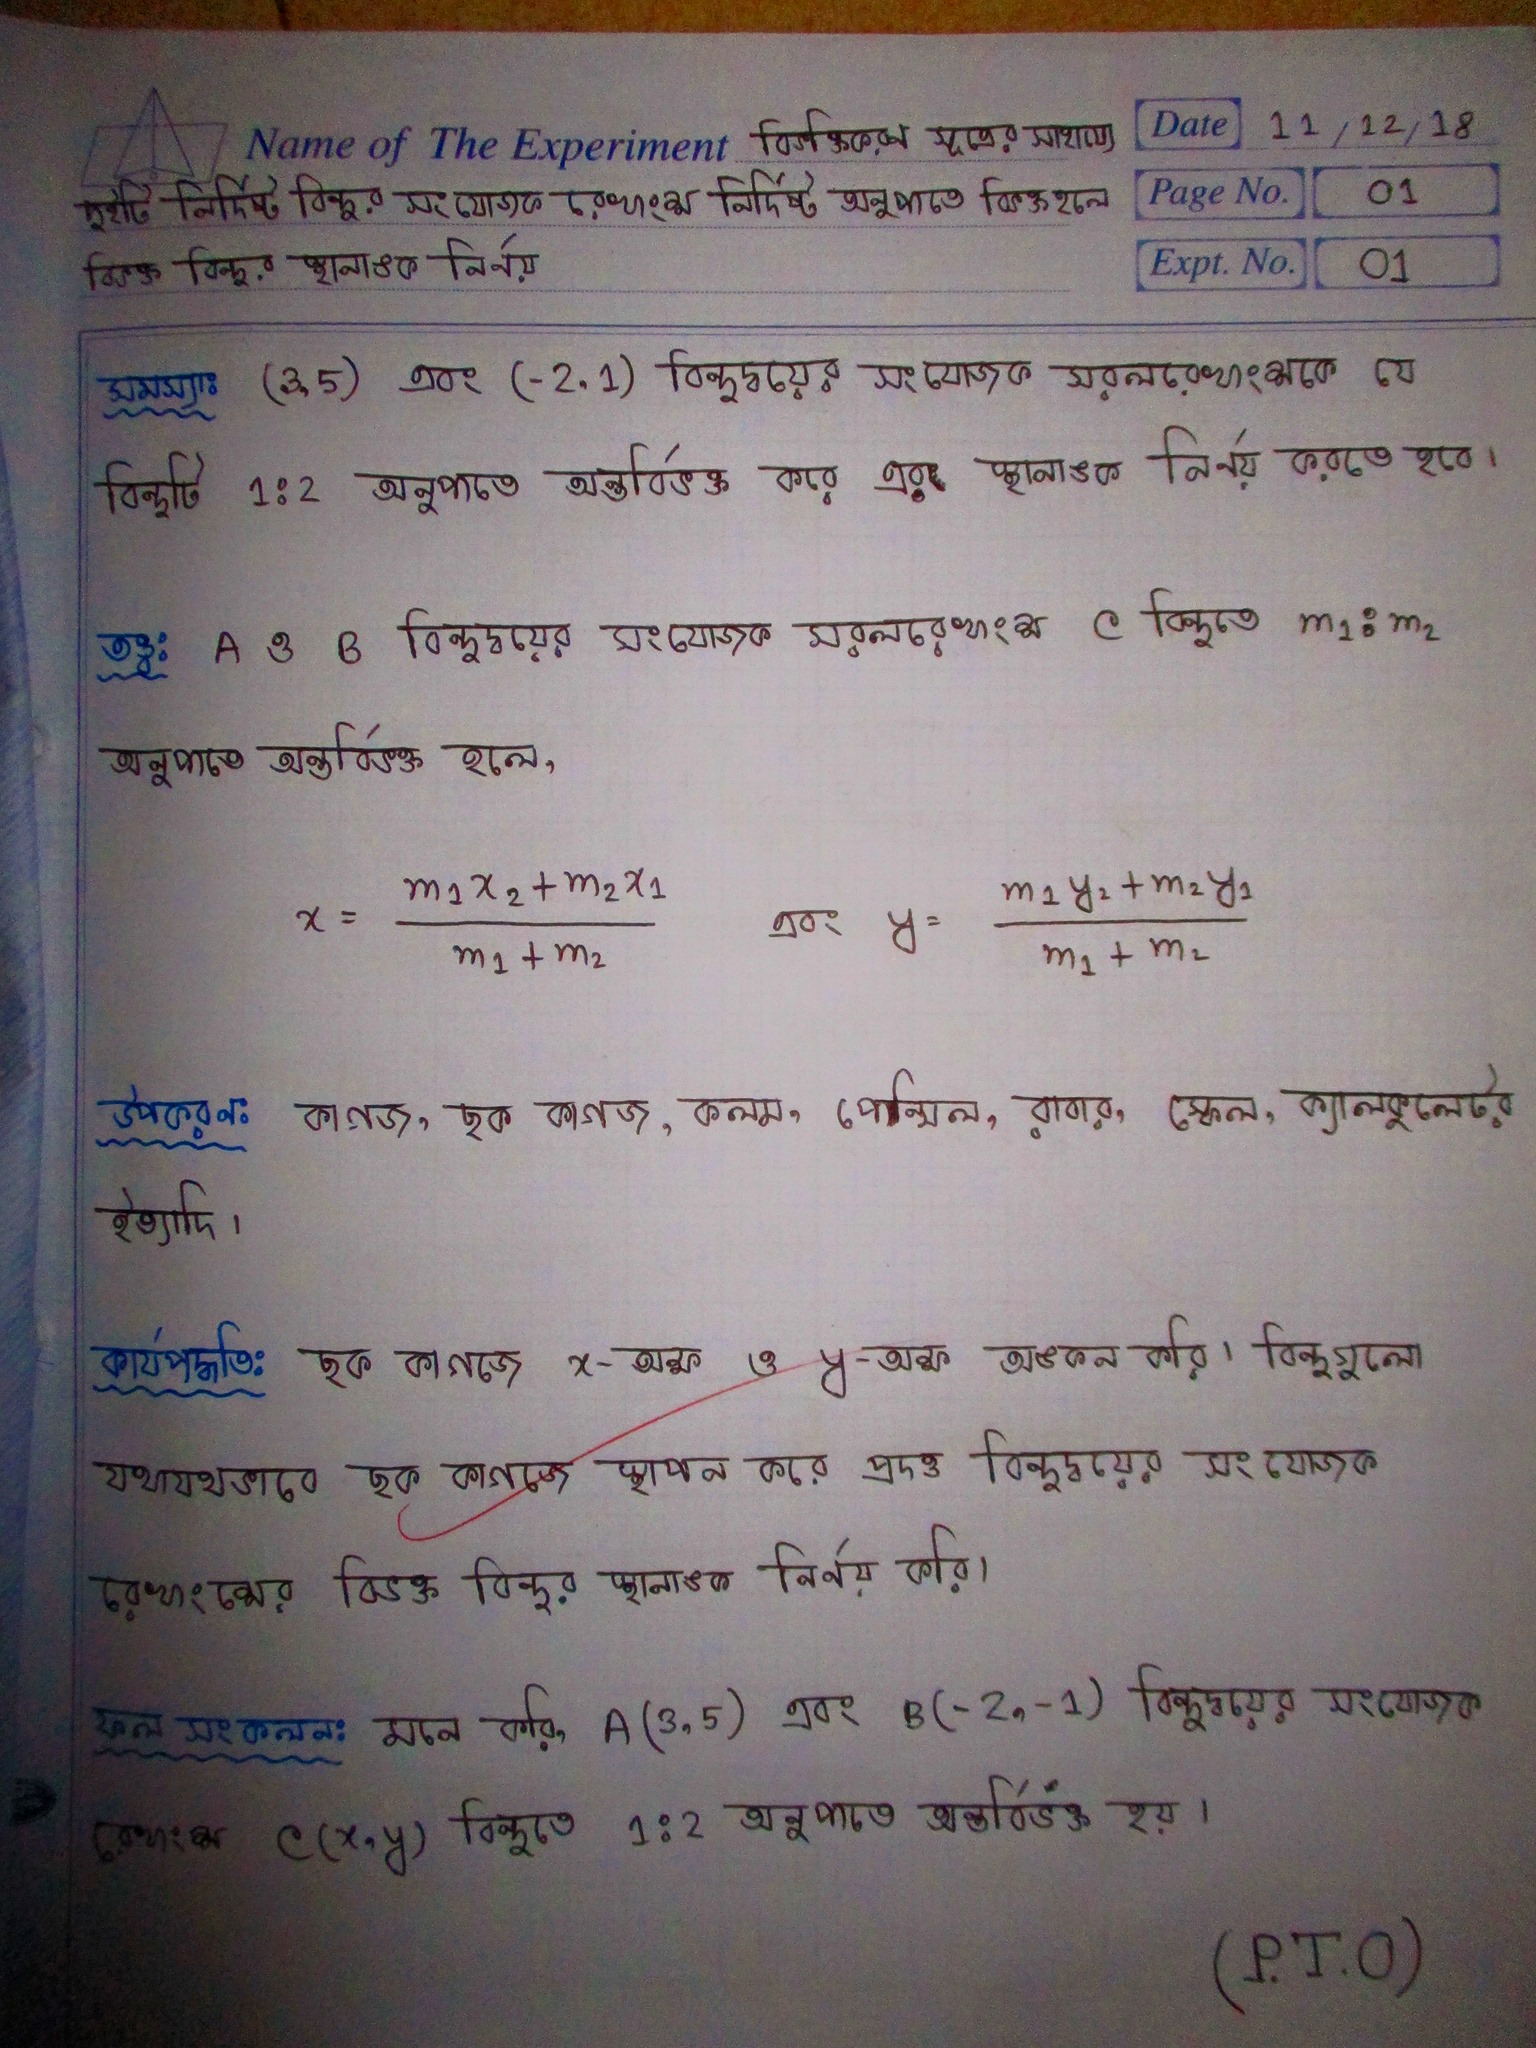 Name of The Experiment বিভক্তিকরণ সূত্রের সাহায্যে
Date 11/12/18
দুইটি নির্দিষ্ট বিন্দুর সংযোজক রেখাংশ নির্দিষ্ট অনুপাতে বিভক্ত হলে
Page No. 01
বিভক্ত বিন্দুর স্থানাঙক নির্নয়
Expt. No. 01
সমস্যাঃ (3,5) এবং (-2,1) বিন্দুদ্বয়ের সংযোজক সরলরেখাংশকে যে
বিন্দুটি 1:2 অনুপাতে অন্তর্বিভক্ত করে এর স্থানাঙক নির্নয় করতে হবে।
তত্ত্বঃ A ও B বিন্দুদ্বয়ের সংযোজক সরলরেখাংশ C বিন্দুতে m₁:m₂
অনুপাতে অন্তর্বিভক্ত হলে,
x = (m₁x₂+m₂x₁)/(m₁+m₂) এবং y = (m₁y₂+m₂y₁)/(m₁+m₂)
উপকরনঃ কাগজ, ছক কাগজ, কলম, পেন্সিল, রাবার, স্কেল, ক্যালকুলেটর
ইত্যাদি।
কার্যপদ্ধতিঃ ছক কাগজে x-অক্ষ ও y-অক্ষ অঙকন করি। বিন্দুগুলো
যথাযথভাবে ছক কাগজে স্থাপন করে প্রদত্ত বিন্দুদ্বয়ের সংযোজক
রেখাংশের বিভক্ত বিন্দুর স্থানাঙক নির্নয় করি।
ফল সংকলনঃ মনে করি, A(3,5) এবং B(-2,-1) বিন্দুদ্বয়ের সংযোজক
রেখাংশ C(x,y) বিন্দুতে 1:2 অনুপাতে অন্তর্বিভক্ত হয়।
(P.T.O)